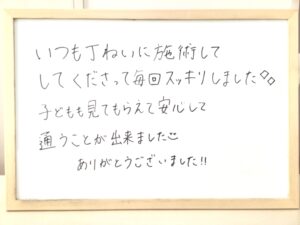 いつも丁ねいに施術して
してくださって毎回スッキリしました◇◇
子どもも見てもらえて安心して
通うことが出来ました
ありがとうございました!!